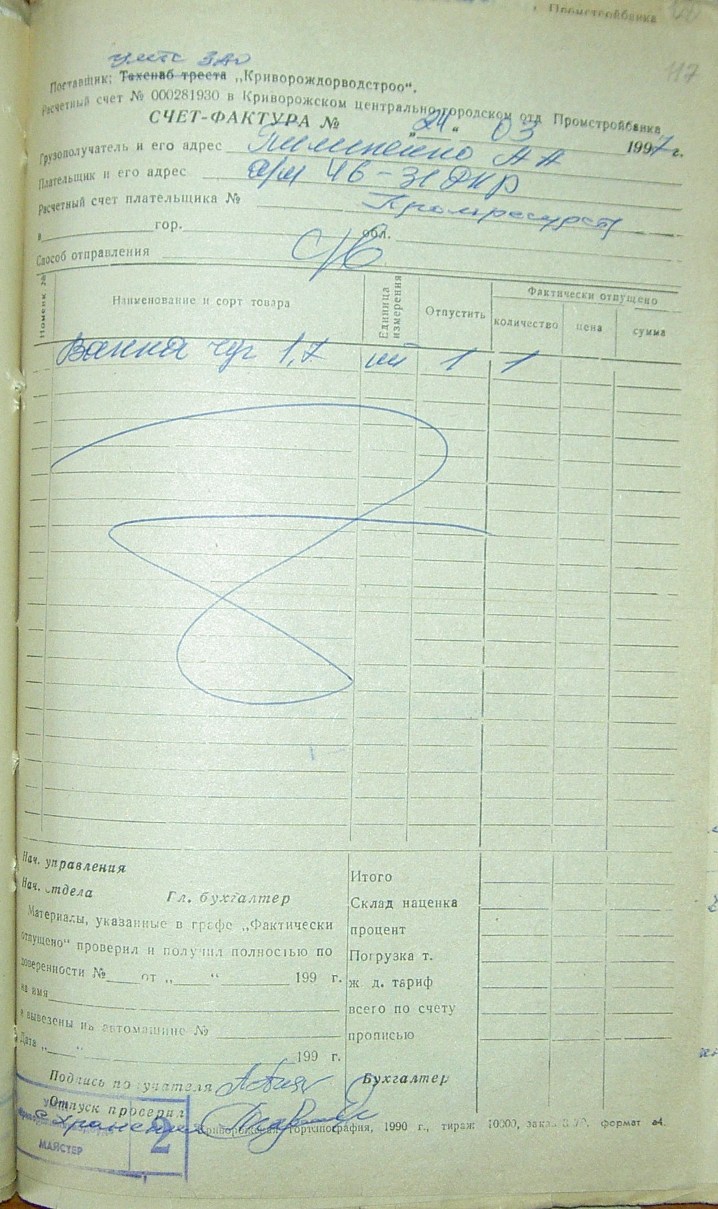 Промстройбанка
117
УМТС ЗАО
Поставщик: Техснаб треста „Криворождорводстроо“.
Расчетный счет № 000281930 в Криворожском центрально-городском отд Промстройбанка
СЧЕТ-ФАКТУРА № „24“ 03 1997 г.
Грузополучатель и его адрес Пилипенко А А
Плательщик и его адрес 46-31 ДНР
Расчетный счет плательщика № Промресурсы
в гор. обл.
Способ отправления с/в
Номенк. №
Наименование и сорт товара
Единица измерения
Отпустить
Фактически отпущено
количество цена сумма
Ванна чуг 1,7 шт 1 1
Нач. управления
Нач. отдела Гл. бухгалтер
Материалы, указанные в графе „Фактически
отпущено“ проверил и получил полностью по
доверенности № от „ “ 199 г.
на имя
и вывезены на автомашине №
Дата „ “ 199 г.
Итого
Склад наценка
процент
Погрузка т.
ж. д. тариф
всего по счету
прописью
Подпись получателя Бухгалтер
Отпуск проверил
Криворожская гортипография, 1990 г., тираж 10000, формат а4.
МАЙСТЕР 2